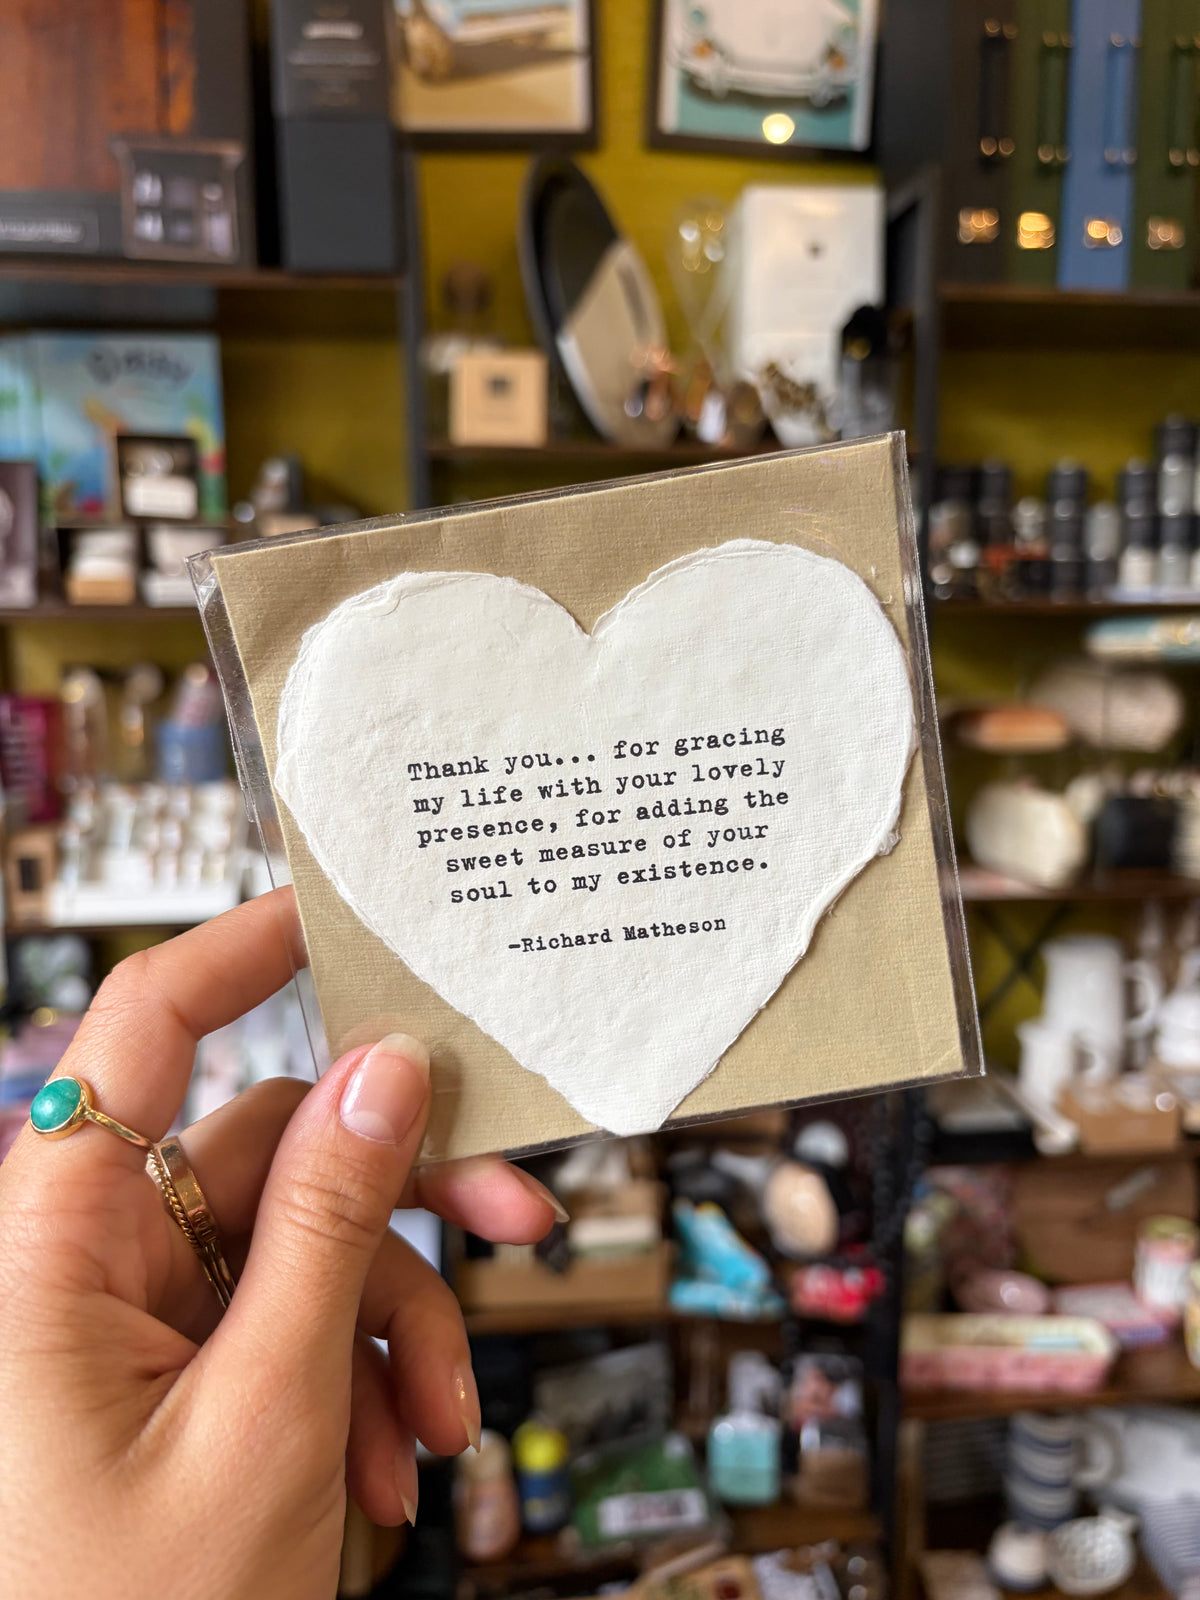 Thank you... for gracing
my life with your lovely
presence, for adding the
sweet measure of your
soul to my existence.
-Richard Matheson